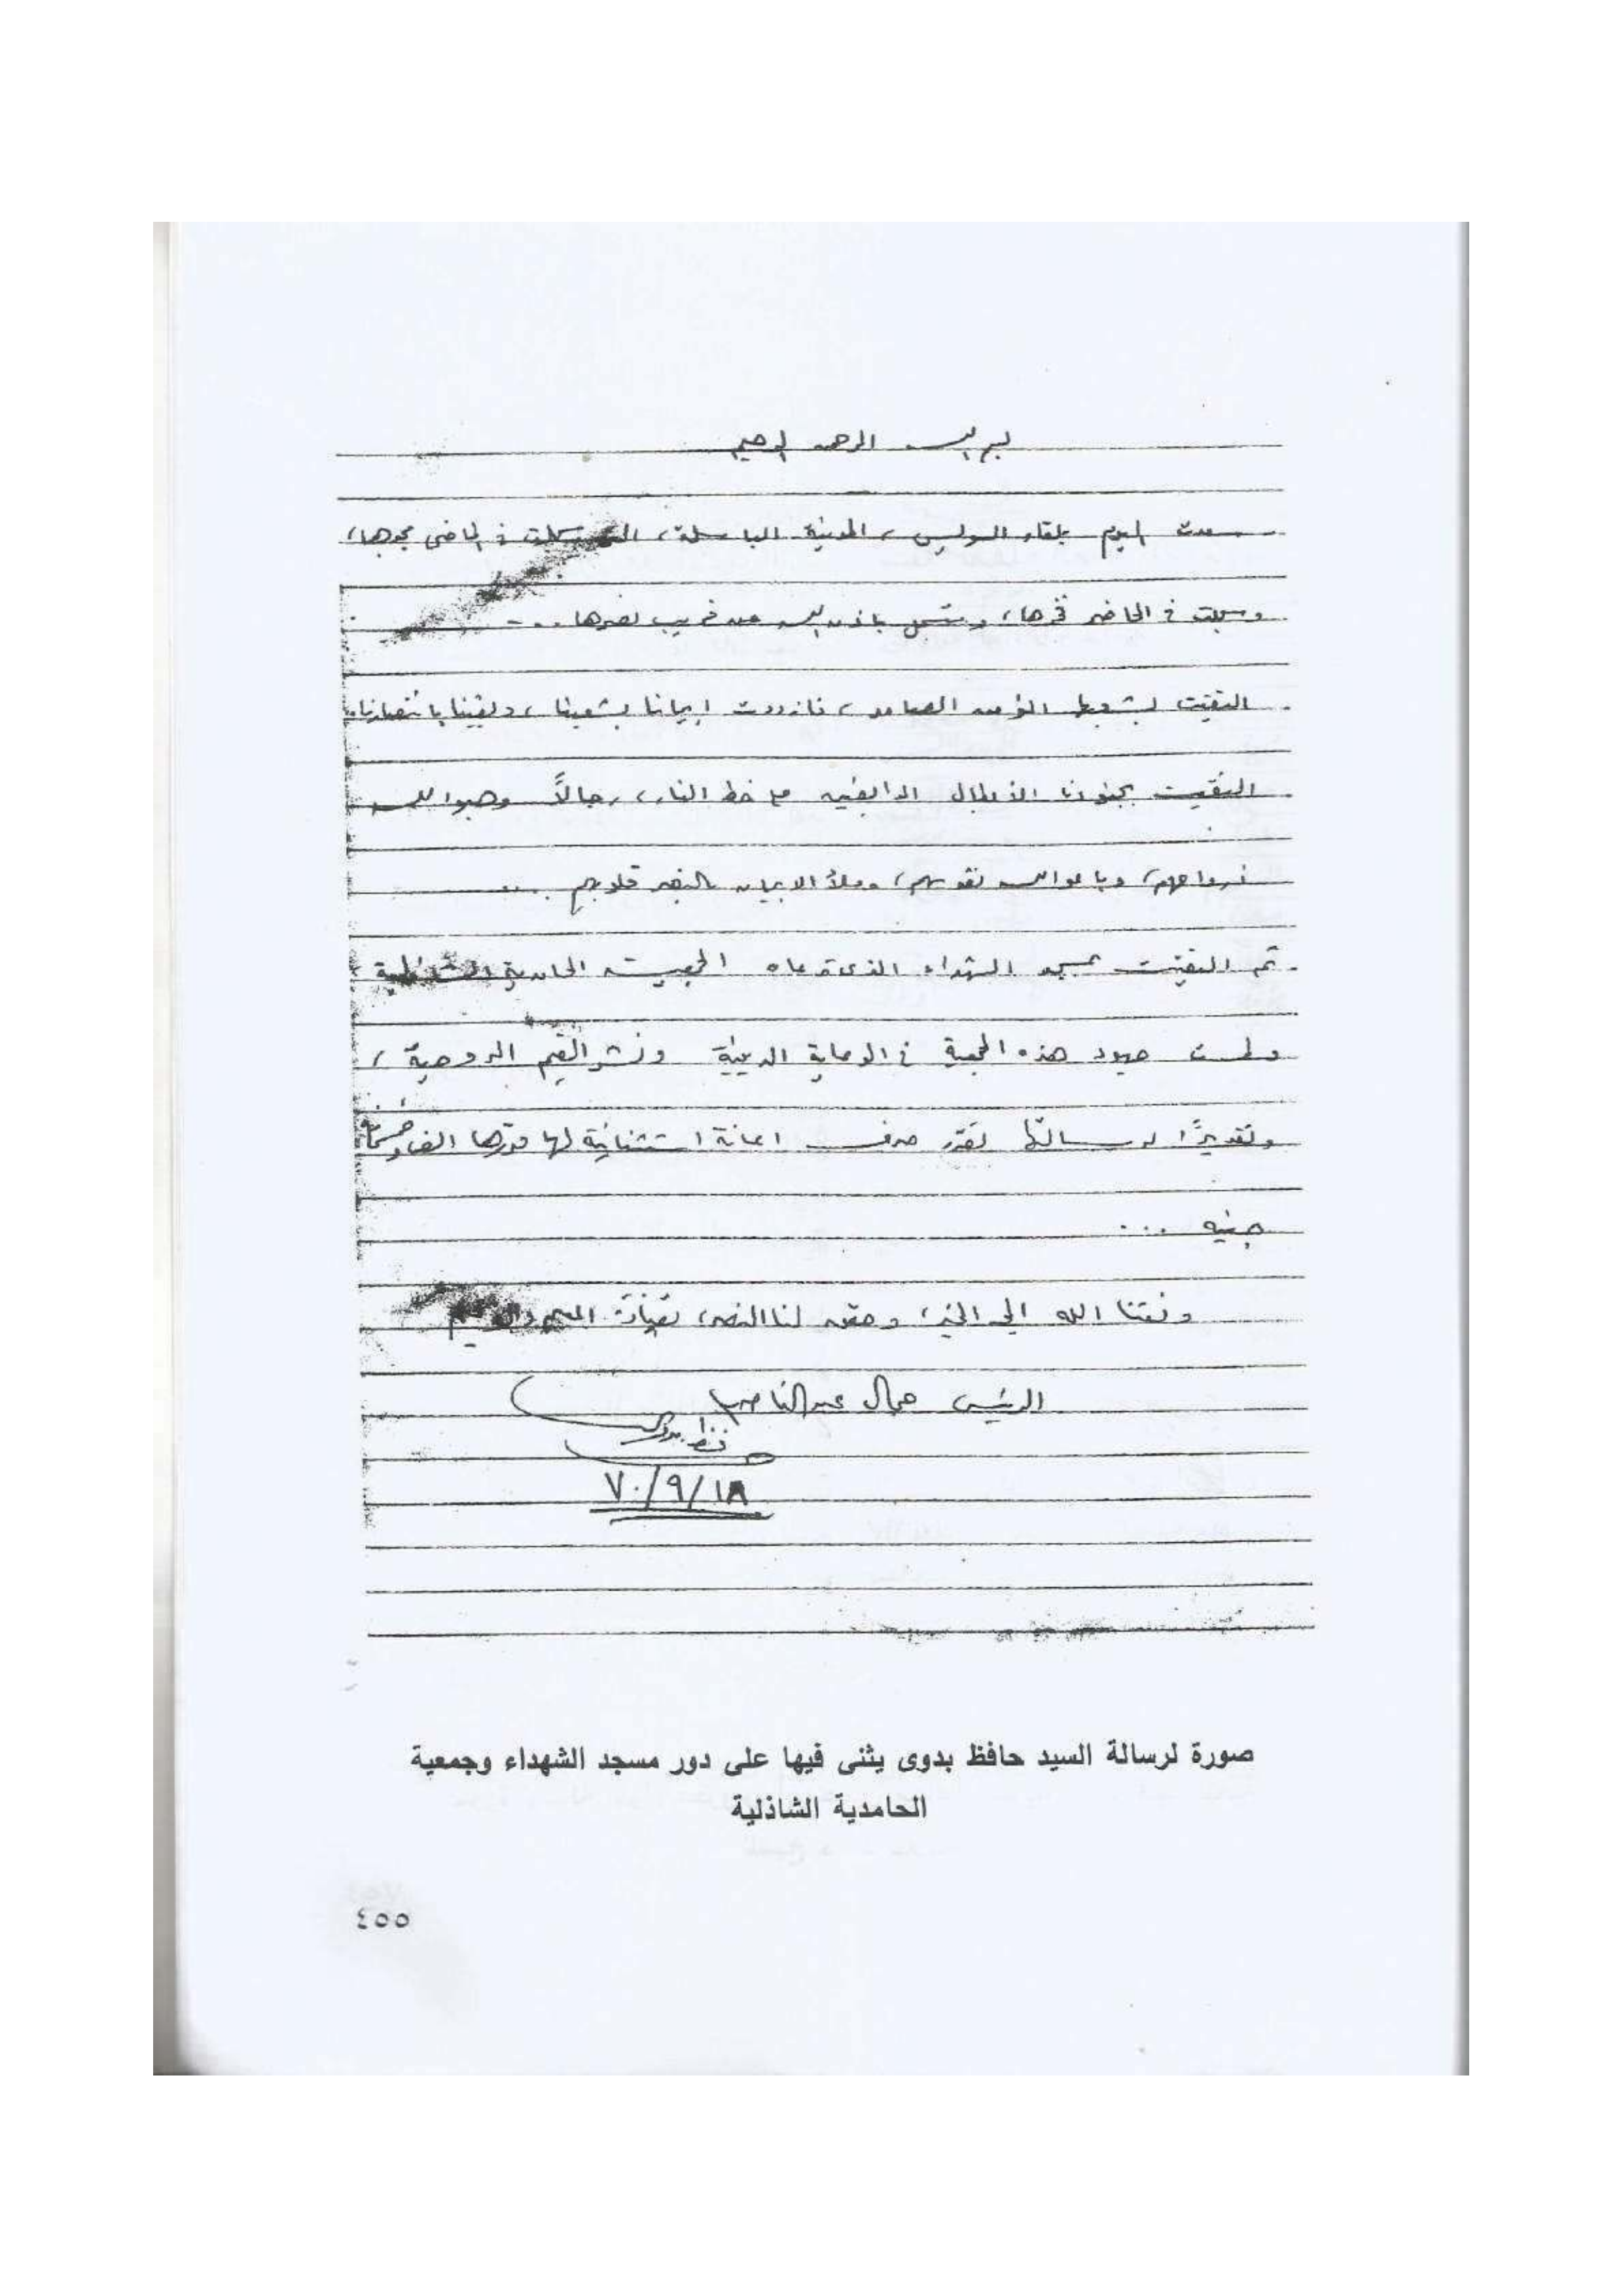 بسم الله الرحمن الرحيم
سعدت اليوم بلقاء السويس ، المدينة الباسلة ، التى سجلت فى الماضى مجدها ،
وسجلت فى الحاضر فخرها ، وستسجل باذن الله عن قريب نصرها ...
التقيت بشعبها المؤمن الصامد ، فازددت ايمانا بشعبنا ، ويقينا بانتصارنا
التقيت بجنودنا الأبطال الواقفين على خط النار ، رجالاً وهبوا لله
أرواحهم ، وباعوا لله نفوسهم ، وملأ الايمان بالنصر قلوبهم ...
ثم التقيت بمسجد الشهداء الذى ترعاه الجمعية الحامدية الشاذلية
ولمست جهود هذه الجمعية فى الرعاية الدينية ونشر القيم الروحية ،
وتقديرًا لرسالتها تقرر صرف اعانة استثنائية لها قدرها الف وخمسمائة
جنيه ...
وفقنا الله الى الخير ، وحقق لنا النصر ، بقيادة
الرئيس جمال عبد الناصر
حافظ بدوى
١٨/٩/٧٠
صورة لرسالة السيد حافظ بدوى يثنى فيها على دور مسجد الشهداء وجمعية
الحامدية الشاذلية
٤٥٥